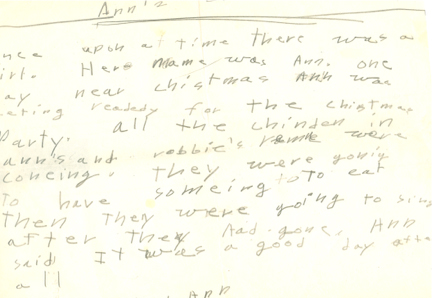 Ann's
nce upon at time there was a
irl. Here Mame was Ann. one
ay near chistmas Ann was
eting readedy for the chistmas
Party. all the chinden in
ann's and robbie's were
concing. they were going
To have someing to To eat
Then they were going to sing
after they Aad gone, Ann
said It was a good day afte
all
Ann